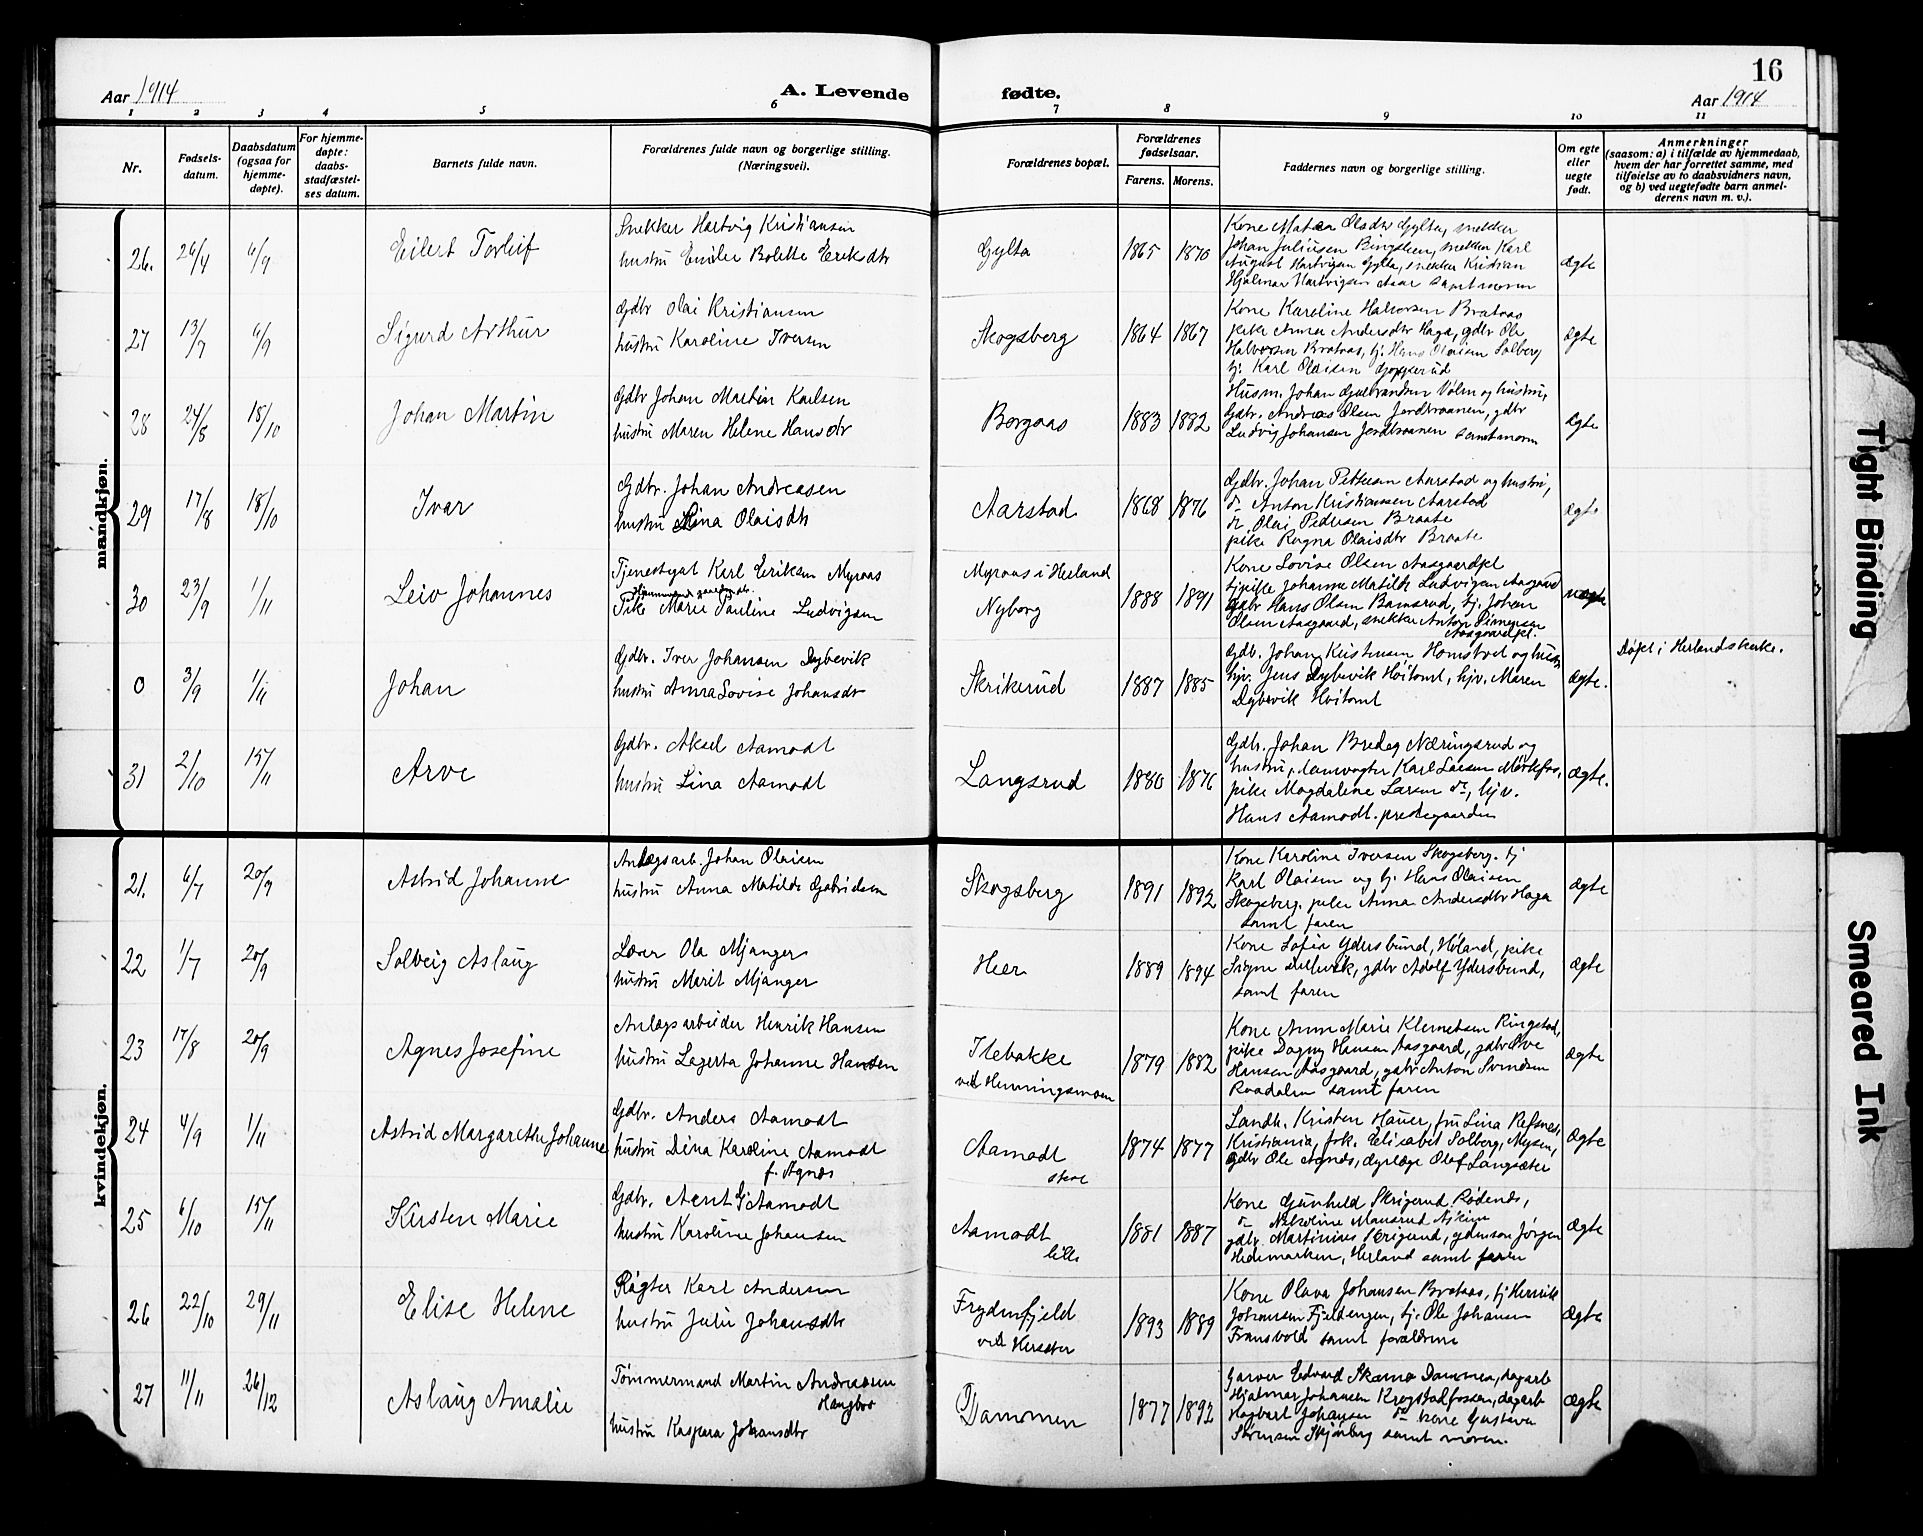 Aar 1914
A. Levende
fødte.
16
Aar 1914
1 2 3 4 5 6 7 8 9 10 11
Nr.
Fødsels-
datum.
Daabsdatum
(ogsaa for
hjemme-
døpte).
For hjemme-
døpte:
daabs-
stadfæstel-
ses datum.
Barnets fulde navn.
Forældrenes fulde navn og borgerlige stilling.
(Næringsvei).
Forældrenes bopæl.
Forældrenes
fødselsaar.
Farens. Morens.
Faddernes navn og borgerlige stilling.
Om egte
eller
uegte
født.
Anmerkninger
(saasom: a) i tilfælde av hjemmedaab,
hvem der har forrettet samme, med
tilføielse av to daabsvidners navn,
og b) ved uegtefødte barn anmel-
derens navn m. v.).
mandkjøn.
26. 26/4 6/9 Eilert Torleif
Snekker Hartvig Kristiansen
hustru Emilie Bolette Eriksdtr
Gylta 1865 1870
Kone Matea Olsdtr Gylta, snekker
Johan Juliusen Bingsleen, snekker Karl
August Hartvigsen Gylta, snekker Kristian
Hjalmar Hartvigsen Aaar samt moren
ægte
27 13/7 6/9 Sigurd Arthur
Gdbr Olai Kristiansen
hustru Karoline Iversen
Skogsberg 1864 1867
Kone Karoline Halvorsen Brataas
pike Anna Andersdtr Haga, gdbr Ole
Halvorsen Brataas, tj. Hans Olaisen Solberg
tj. Karl Olaisen
ægte
28 24/8 18/10 Johan Martin
Gdbr Johan Martin Karlsen
hustru Maren Helene Hansdtr
Borgaas 1883 1882
Husm. Johan Gulbrandsen Volen og hustru,
Gdbr. Andreas Olsen Jordbraanen, gdbr
Ludvig Johansen Jordbraanen samt moren
ægte
29 17/8 18/10 Ivar
Gdbr. Johan Andreasen
hustru Lina Olaisdtr
Aarstad 1868 1876
Gdbr. Johan Pettersen Aarstad og hustru,
do Anton Kristianssen Aarstad
do Olai Pedersen Braate
pike Ragna Olaisdtr Braate
ægte
30 23/9 1/11 Leiv Johannes
Tjenestegut Karl Eriksen Myraas
Pike Marie Pauline Ludvigsen
Myraas i Heeland
Nyborg
1888 1891
Kone Lovise Olsen Aasgaardpl
tjpike Johanne Matilde Ludvigsen Aasgaard
gdbr Hans Olsen Bamsrud, tj. Johan
Olsen Aasgaard, snekker Anton Simensen
Aasgaardpl.
uægte
0 3/9 1/11 Johan
Gdbr. Iver Johansen Dybevik
hustru Anna Lovise Johansdtr
Skrikerud 1887 1885
Gdb. Johan Kristiansen Homstvet og hustr,
hjv. Jens Dybevik Hvitomt, hjv. Maren
Dybevik Hvitomt
ægte.
Døpt i Herlandskirke.
31 2/10 15/11 Arve
Gdbr. Aksel Aamodt
hustru Lina Aamodt
Langsrud 1880 1876
Gdbr. Johan Bredeg Næringsrud og
hustru, damvogter Karl Larsen Mörkfos,
pike Magdalene Larsen do, hjv.
Hans Aamodt. prestegaarden
ægte.
kvindekjøn.
21. 6/7 20/9 Astrid Johanne
Anlægsarb. Johan Olaisen
hustru Anna Matilde Gabrielsen
Skogsberg 1891 1892
Kone Karoline Iversen Skogsberg. tj
Karl Olaisen og tj. Hans Olaisen
Skogsberg, pike Anna Andersdtr Haga
samt faren
ægte
22 1/7 20/9 Solveig Aslaug
Lærer Ola Mjanger
hustru Marit Mjanger
Heer 1889 1894
Kone Sofie Ydersbund, Høland, pike
Signe, gdbr Adolf Ydersbund,
samt faren
ægte
23 17/8 20/9 Agnes Josefine
Anlægsarbeider Henrik Hansen
hustru Lagerta Johanne Hansen
Ilebakke
ved Henningsmoen
1879 1882
Kone Anne Marie Klemetsen Ringstad,
pike Dagny Hansen Aasgaard, gdbr Ove
Hansen Aasgaard, gdbr Anton Svendsen
Raadalen samt faren
ægte
24 4/9 1/11 Astrid Margarethe Johanne
Gdbr. Anders Aamodt
hustru Dina Karoline Aamodt
f. Agnæs
Aamodt
store
1874 1877
Landh. Kristen Hauer, fru Lina Refsnes,
Kristiania, frk. Elisabet Solberg, Mysen,
gdbr Ole Agnæs, dyrlæge Olaf Langsæter
ægte
25 6/10 15/11 Kirsten Marie
Gdbr. Arnt G. Aamodt
hustru Karoline Johansen
Aamodt
lille
1881 1887
Kone Gunhild Skrigerud, Rødenes,
do Nikoline Mansrud Askim
gdbr. Martinius Skrigerud, ydmson Jørgen
Hedemarken, Herland samt faren
ægte
26 22/10 29/11 Elise Helene
Røgter Karl Andersen
hustru Julie Johansdtr
Frydenfjeld
ved Hersæter
1893 1889
Kone Olava Johansen Brataas, tj Henrik
Johansen Fjeldengen, tj. Ole Johansen
Fransvold samt forældrene
ægte
27 11/11 26/12 Aslaug Amalie
Tømmermand Martin Andreassen
Haugbro
hustru Kaspara Johansdtr
Dammen 1877 1892
Garver Edvard Dammen, dagarb
Hjalmar Johansen Krogstadfossen, dagarb
Hagbart Johansen do kone Gustava
Sørensen Skjønberg samt moren.
ægte
Tight Binding
Smeared Ink